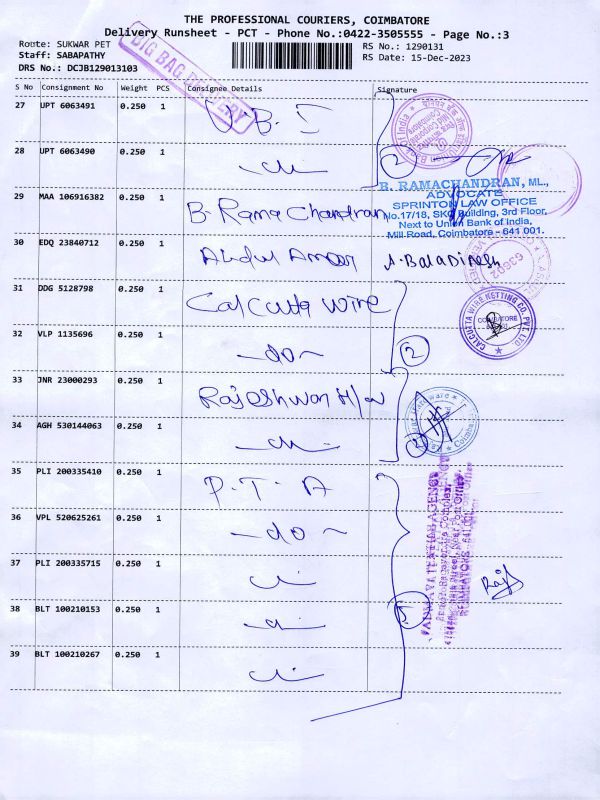 THE PROFESSIONAL COURIERS, COIMBATORE
Delivery Runsheet - PCT - Phone No.:0422-3505555 - Page No.:3
Route: SUKWAR PET
RS No.: 1290131
Staff: SABAPATHY
RS Date: 15-Dec-2023
DRS No.: DCJB129013103
BIG BAG DELIVERY
S No Consignment No Weight PCS Consignee Details Signature
27 UPT 6063491 0.250 1 U.B.I
28 UPT 6063490 0.250 1
2
B. RAMACHANDRAN, ML.,
ADVOCATE
SPRINTON LAW OFFICE
No.17/18, SKG Building, 3rd Floor,
Next to Union Bank of India,
Mill Road, Coimbatore - 641 001.
29 MAA 106916382 0.250 1 B. Rama Chandran
30 EDQ 23840712 0.250 1 Abdul
63602
31 DDG 5128798 0.250 1 Calcutta Wire
CALCUTTA WIRE NETTING CO. PVT. LTD.
COIMBATORE
32 VLP 1135696 0.250 1 -do-
2
33 JNR 23000293 0.250 1 Rajeshwari H/W
34 AGH 530144063 0.250 1
2
35 PLI 200335410 0.250 1 P.T.A
36 VPL 520625261 0.250 1 -do-
37 PLI 200335715 0.250 1
Raj
38 BLT 100210153 0.250 1
5
39 BLT 100210267 0.250 1